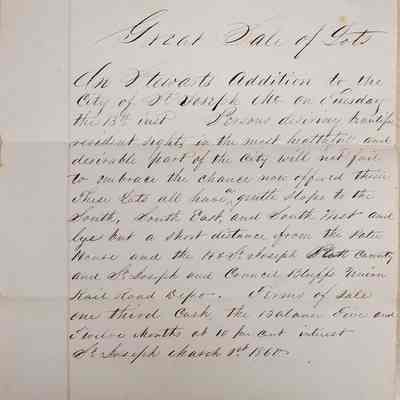 Great Sale of Lots
In Stewarts Addition to the
City of St Joseph Mo on Tuesday
the 13th inst Persons desireing beautifull
resident sights in the most healthful and
desirable part of the City will not fail
to embrace the chance now offered them
These Lots all have a gentle Slope to the
South, South East, and South West and
lye but a short distance from the Patee
House and the H & St Joseph Platt County
and St Joseph and Council Bluffs Union
Rail Road Depo. Terms of Sale
one third Cash, the Balance Six and
Twelve Months at 10 per cent interest
St Joseph March 1st 1860